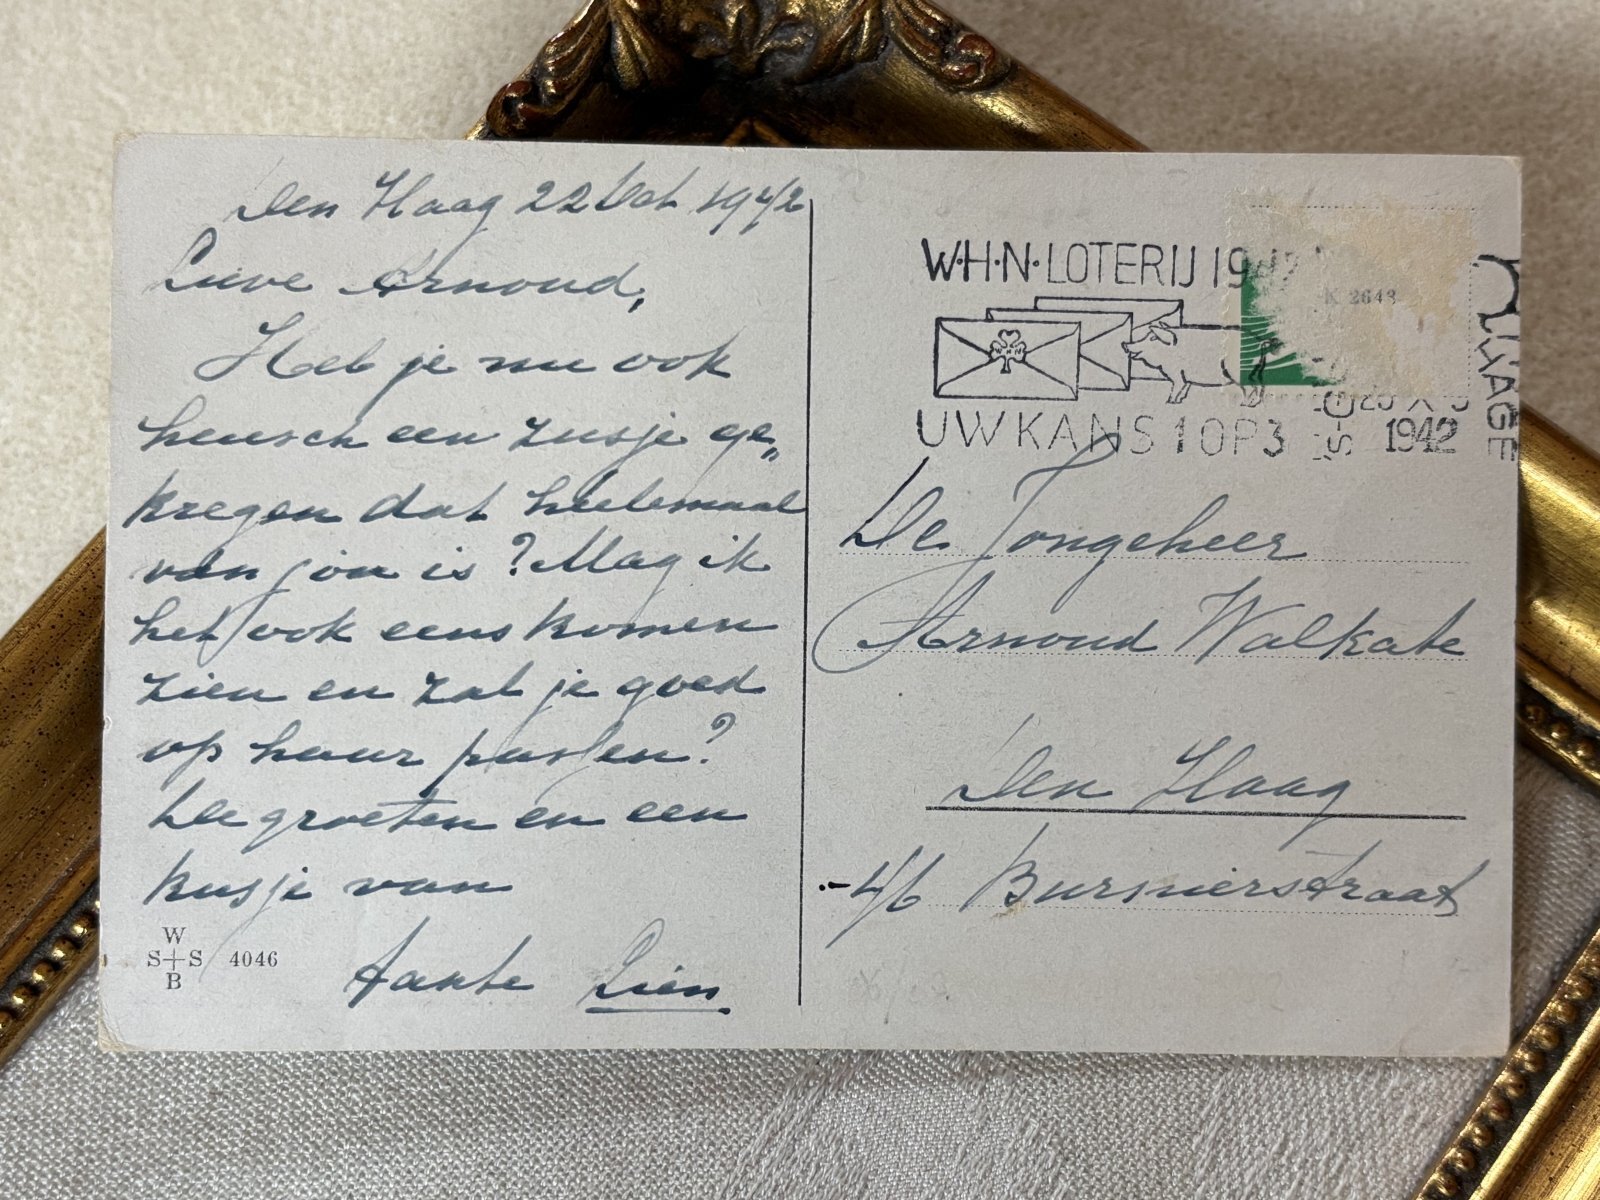 Den Haag 22 Oct 1942
Lieve Arnoud,
Heb je nu ook
heusch een zusje ge„
kregen dat heelemaal
van jou is? Mag ik
het ook eens komen
zien en zal je goed
op haar passen?
De groeten en een
kusje van
Tante Lien
W
S S
B
4046
W·H·N·LOTERIJ 1942
K 2643
WHN
UW KANS 1 OP 3
1942
'S-G
HAGE
De Jongeheer
Arnoud Walkate
Den Haag
46 Burnierstraat